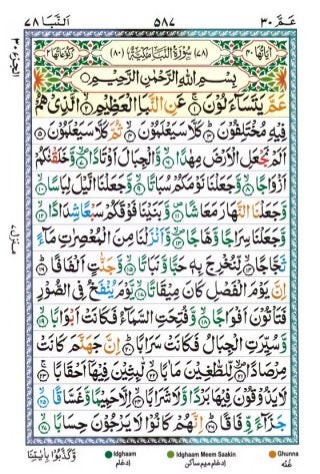 عَمَّ ٣٠ ٥٨٧ اَلنَّبَا ٧٨
اٰيَاتُهَا ٤٠ (٧٨) سُوْرَةُ النَّبَاِ مَكِّيَّةٌ (٨٠) رُكُوْعَاتُهَا ٢
بِسْمِ اللّٰهِ الرَّحْمٰنِ الرَّحِيْمِ
عَمَّ يَتَسَآءَلُوْنَ ۚ‏﴿١﴾ عَنِ النَّبَاِ الْعَظِيْمِ ۙ‏﴿٢﴾ الَّذِىْ هُمْ
فِيْهِ مُخْتَلِفُوْنَ ؕ‏﴿٣﴾ كَلَّا سَيَعْلَمُوْنَ ۙ‏﴿٤﴾ ثُمَّ كَلَّا سَيَعْلَمُوْنَ‏﴿٥﴾
اَلَمْ نَجْعَلِ الْاَرْضَ مِهٰدًا ۙ‏﴿٦﴾ وَّالْجِبَالَ اَوْتَادًا ۙ‏﴿٧﴾ وَّخَلَقْنٰكُمْ
اَزْوَاجًا ۙ‏﴿٨﴾ وَّجَعَلْنَا نَوْمَكُمْ سُبَاتًا ۙ‏﴿٩﴾ وَّجَعَلْنَا الَّيْلَ لِبَاسًا ۙ‏﴿١٠﴾
وَّجَعَلْنَا النَّهَارَ مَعَاشًا‏﴿١١﴾ وَّبَنَيْنَا فَوْقَكُمْ سَبْعًا شِدَادًا ۙ‏﴿١٢﴾
وَّجَعَلْنَا سِرَاجًا وَّهَّاجًا ۙ‏﴿١٣﴾ وَّاَنْزَلْنَا مِنَ الْمُعْصِرٰتِ مَآءً
ثَجَّاجًا ۙ‏﴿١٤﴾ لِّنُخْرِجَ بِهٖ حَبًّا وَّنَبَاتًا ۙ‏﴿١٥﴾ وَّجَنّٰتٍ اَلْفَافًا ؕ‏﴿١٦﴾
اِنَّ يَوْمَ الْفَصْلِ كَانَ مِيْقَاتًا ۙ‏﴿١٧﴾ يَّوْمَ يُنْفَخُ فِى الصُّوْرِ
فَتَاْتُوْنَ اَفْوَاجًا ۙ‏﴿١٨﴾ وَّفُتِحَتِ السَّمَآءُ فَكَانَتْ اَبْوَابًا ۙ‏﴿١٩﴾
وَّسُيِّرَتِ الْجِبَالُ فَكَانَتْ سَرَابًا ؕ‏﴿٢٠﴾ اِنَّ جَهَنَّمَ كَانَتْ
مِرْصَادًا ۙ‏﴿٢١﴾ لِّلطّٰغِيْنَ مَاٰبًا ۙ‏﴿٢٢﴾ لّٰبِثِيْنَ فِيْهَاۤ اَحْقَابًا ۚ‏﴿٢٣﴾
لَا يَذُوْقُوْنَ فِيْهَا بَرْدًا وَّلَا شَرَابًا ۙ‏﴿٢٤﴾ اِلَّا حَمِيْمًا وَّغَسَّاقًا ۙ‏﴿٢٥﴾
جَزَآءً وِّفَاقًا ؕ‏﴿٢٦﴾ اِنَّهُمْ كَانُوْا لَا يَرْجُوْنَ حِسَابًا ۙ‏﴿٢٧﴾
وَّكَذَّبُوْا بِاٰيٰتِنَا
Idghaam ادغام
Idghaam Meem Saakin ادغام ميم ساكن
Ghunna غنّه
الجزء ٣٠
منزل ٧